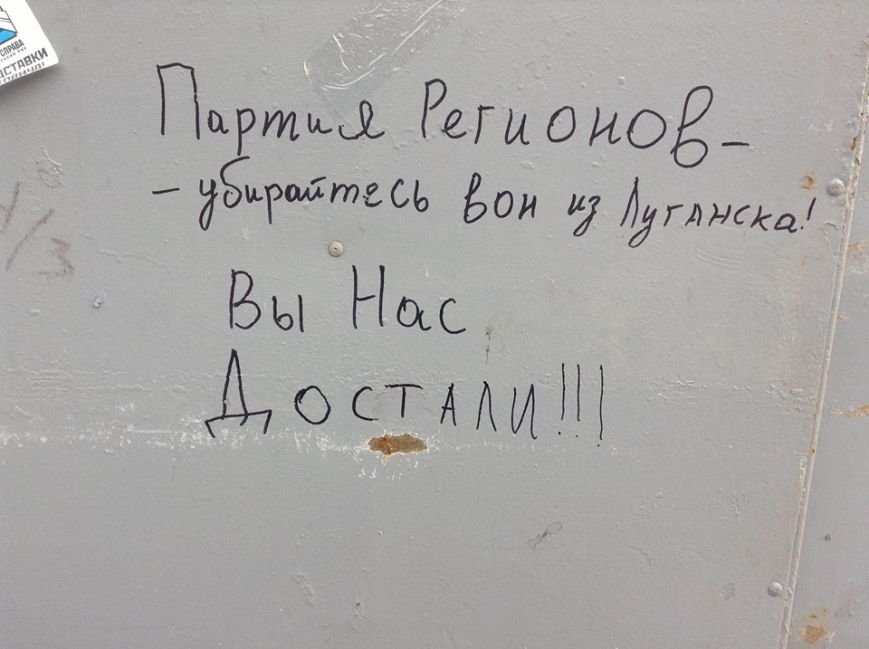 СПРАВА
Партия Регионов –
– убирайтесь вон из Луганска!
Вы Нас
Достали!!!